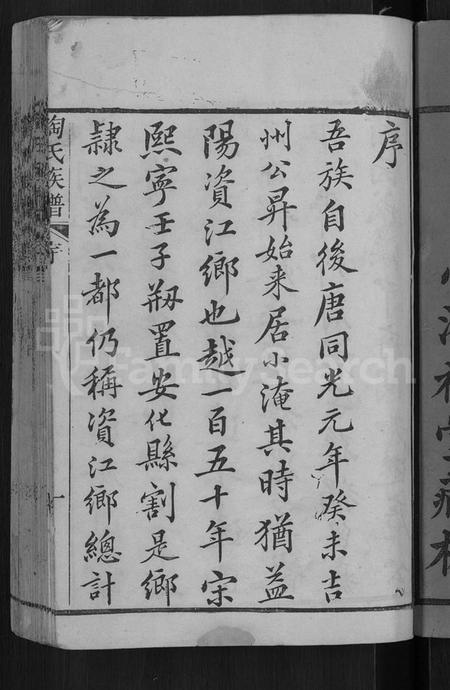 序
吾族自後唐同光元年癸未吉
州公昇始来居小淹其時猶益
陽資江鄉也越一百五十年宋
熙寧壬子剏置安化縣割是鄉
隸之為一都仍稱資江鄉總計
陶氏族譜
序
FamilySearch